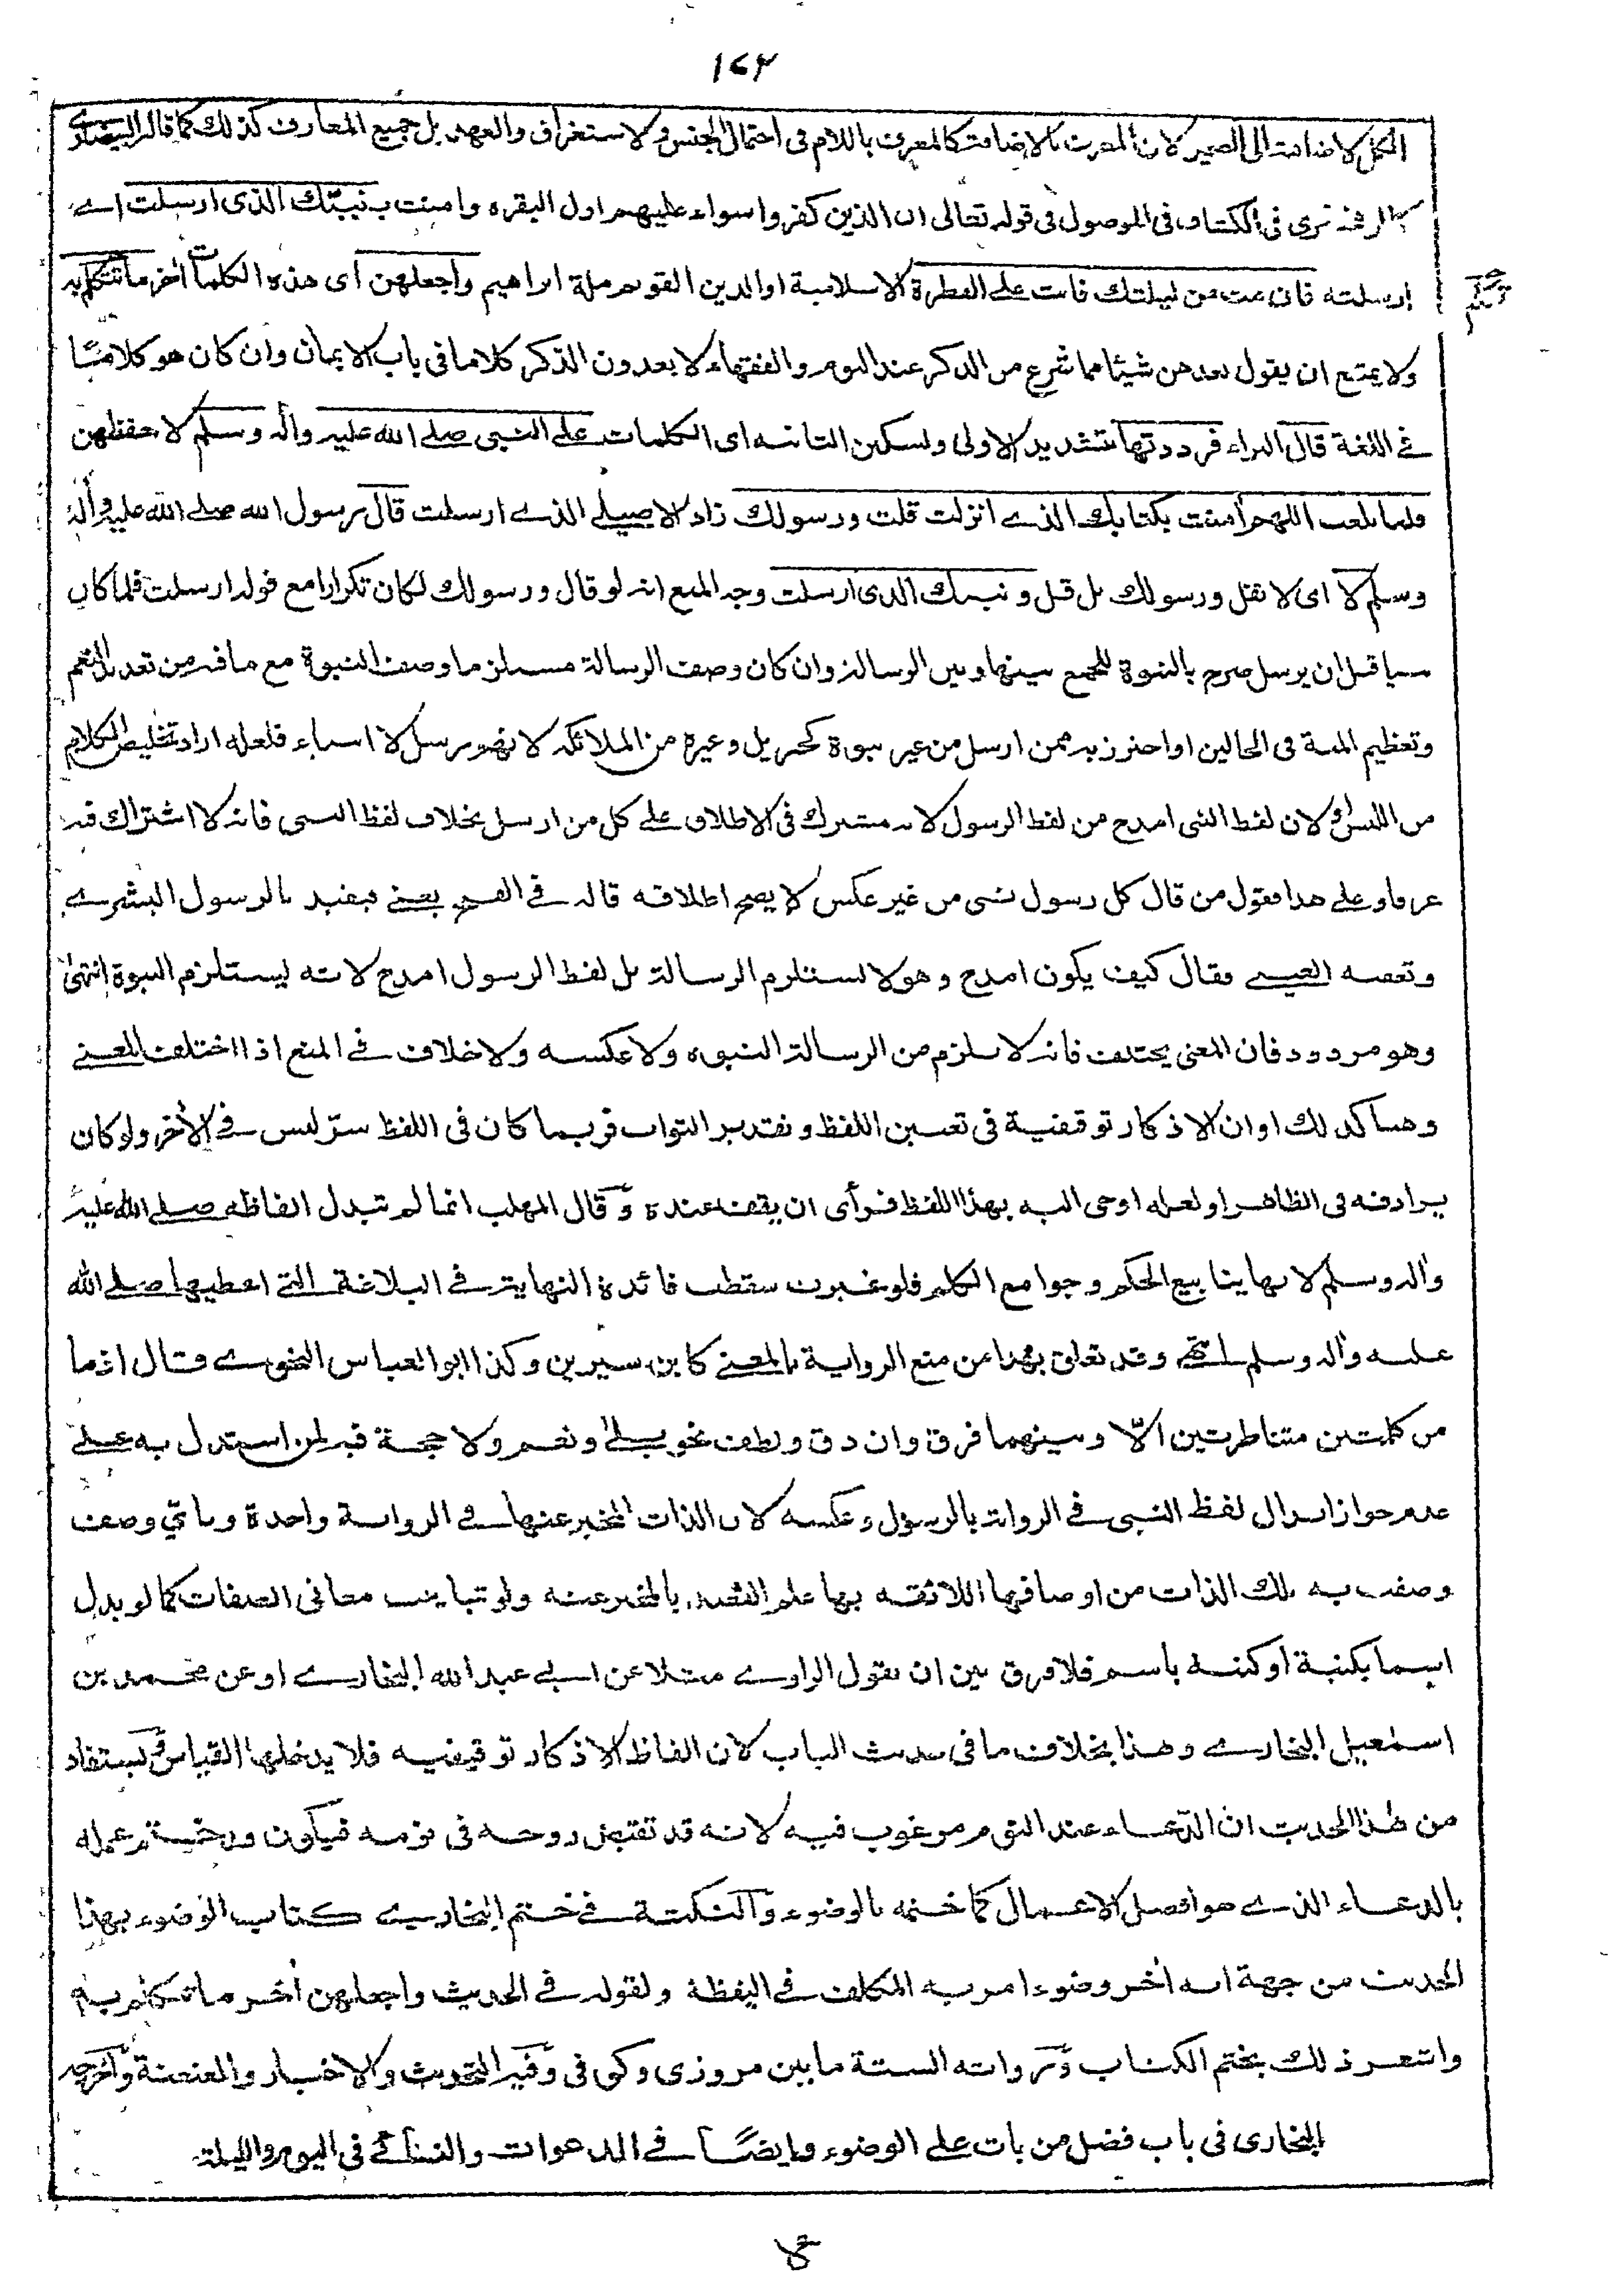 ١٧٢
الكل لاضافته الى الضمير لان المعرف بالاضافة كالمعرف باللام فى احتمال الجنس والاستغراق والعهد بل جميع المعارف كذلك كما قاله البيضاوى
كالزمخشرى فى الكشاف فى الموصول فى قوله تعالى ان الذين كفروا سواء عليهم اول البقره وامنت بنبيّك الذى ارسلت اے
ارسلته فان مت من ليلتك فانت على الفطرة الاسلامية اوالدين القويم ملة ابراهيم واجعلهن اى هذه الكلمات اٰخر ما تتكلم به
ولا يمتنع ان يقول بعدهن شيئا مما شرع من الذكر عند النوم والفقهاء لا يعدون الذكر كلاما فى باب الايمان وان كان هو كلامًا
فے اللغة قال البراء فرددتها بتشديد الاولى وتسكين الثانيه اى الكلمات علے النبى صلے الله عليه واٰله وسلم لاحفظهن
فلما بلغت اللهم اٰمنت بكتابك الذے انزلت قلت ورسولك زاد الاصيلے الذے ارسلت قال رسول الله صلے الله عليه واٰله
وسلم لا اى لا تقل ورسولك بل قل ونبيك الذى ارسلت وجه المنع انه لو قال ورسولك لكان تكرارا مع قوله ارسلت فلما كان
نبيا قبل ان يرسل صرح بالنبوة للجمع بينها وبين الرسالة وان كان وصف الرسالة مستلزما وصف النبوة مع ما فيه من تعديد النعم
وتعظيم المنة فى الحالين او احترز به ممن ارسل من غير نبوة كجبريل وغيره من الملائكه لانهم رسل لا انبياء فلعله اراد تخليص الكلام
من اللبس او لان لفظ النبى امدح من لفظ الرسول لانه مشترك فى الاطلاق علے كل من ارسل بخلاف لفظ النبى فانه لا اشتراك فيه
عرفا وعلے هذا فقول من قال كل رسول نبى من غير عكس لا يصح اطلاقه قاله فے الفتح يعنے فيقيد بالرسول البشرے
وتعقبه العينے فقال كيف يكون امدح وهو لا يستلزم الرسالة بل لفظ الرسول امدح لانه يستلزم النبوة انتهىٰ
وهو مردود فان المعنى يختلف فانه لا يلزم من الرسالة النبوه ولا عكسه ولا خلاف فے المنع اذا اختلف المعنے
وهنا كذلك او ان الاذكار توقيفية فى تعيين اللفظ وتقدير الثواب فربما كان فى اللفظ سرّ ليس فے الاٰخر ولو كان
يرادفه فى الظاهر او لعله اوحى اليه بهذا اللفظ فرأى ان يقف عنده وقال المهلب انما لم تبدل الفاظه صلے الله عليه
واٰله وسلم لانها ينابيع الحكم وجوامع الكلم فلو غيرت سقطت فائدة النهاية فے البلاغة التے اعطيها صلے الله
عليه واٰله وسلم انتهے وقد تعلق بهذا من منع الرواية بالمعنے كابن سيرين وكذا ابو العباس النحوے قال اذ ما
من كلمتين متناظرتين الّا وبينهما فرق وان دق ولطف نحو بلىٰ ونعم ولا حجة فيه لمن استدل به علے
عدم جواز ابدال لفظ النبى فے الرواية بالرسول وعكسه لان الذات المخبر عنها فے الرواية واحدة وباىّ وصف
وصفت به تلك الذات من اوصافها اللائقه بها علم القصد بالمخبر عنه ولو تباينت معانى الصفات كما لو بدل
اسما بكنية او كنيه باسم فلا فرق بين ان يقول الراوے مثلا عن ابے عبد الله البخارے او عن محمد بن
اسمٰعيل البخارے وهذا بخلاف ما فى حديث الباب لان الفاظ الاذكار توقيفيه فلا يدخلها القياس ويستفاد
من هٰذا الحديث ان الدّعاء عند النوم مرغوب فيه لانه قد تقبض روحه فى نومه فيكون قد ختم عمله
بالدعاء الذے هو افضل الاعمال كما ختمه بالوضوء والنكتة فے ختم البخارے كتاب الوضوء بهذا
الحديث من جهة انه اٰخر وضوء امر به المكلف فے اليقظة ولقوله فے الحديث واجعلهن اٰخر ما تتكلم به
واشعر ذلك بختم الكتاب ورواته الستة ما بين مروزى وكوفى وفيه التحديث والاخبار والعنعنة واخرجه
البخارى فى باب فضل من بات على الوضوء وايضًا فے الدعوات والنسائے فى اليوم والليلة